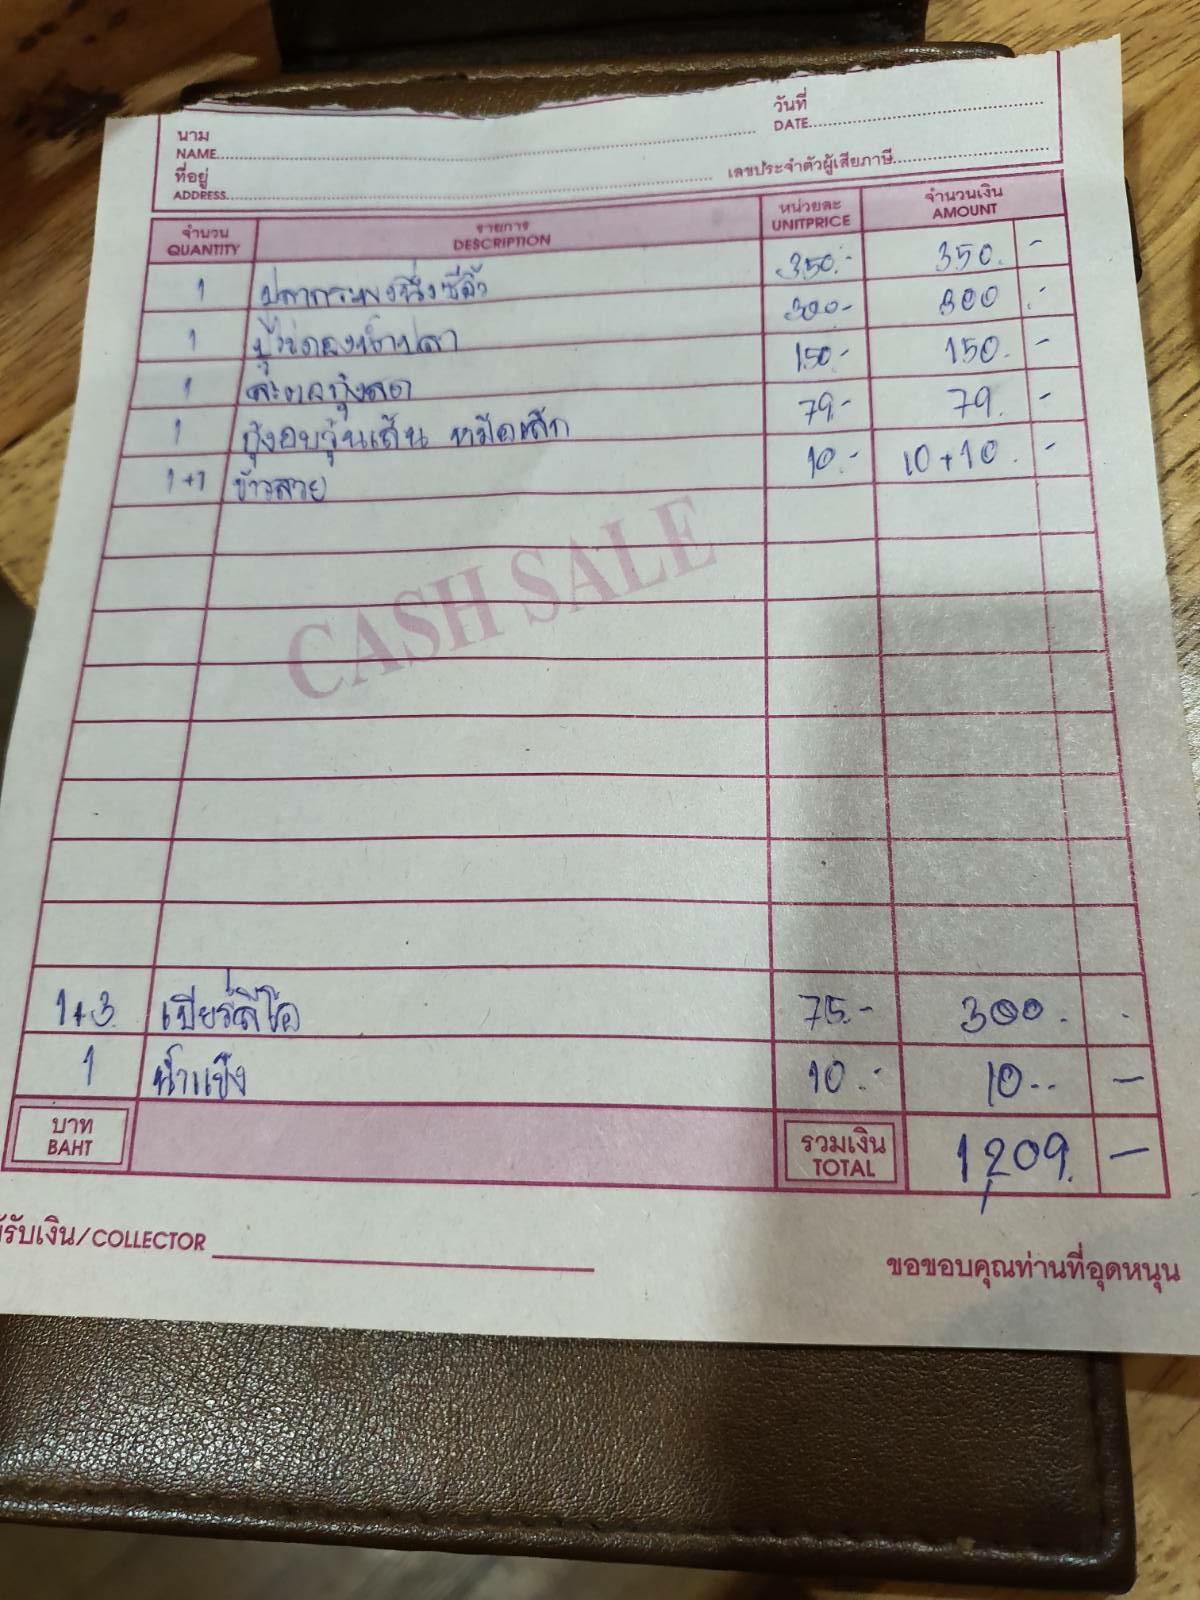 นาม
NAME
วันที่
DATE
ที่อยู่
ADDRESS
เลขประจำตัวผู้เสียภาษี
จำนวน รายการ หน่วยละ จำนวนเงิน
QUANTITY DESCRIPTION UNITPRICE AMOUNT
1 ปลากระพงนึ่งซีอิ้ว 350.- 350. -
1 ปูไข่ดองน้ำปลา 300- 300 .-
1 สะตอกุ้งสด 150.- 150. -
1 กุ้งอบวุ้นเส้น หม้อเล็ก 79.- 79. -
1+1 ข้าวสวย 10.- 10+10. -
CASH SALE
1+3 เบียร์ลีโอ 75.- 300. .
1 น้ำแข็ง 10.- 10.- -
บาท
BAHT
รวมเงิน
TOTAL
1,209. -
รับเงิน/COLLECTOR
ขอขอบคุณท่านที่อุดหนุน